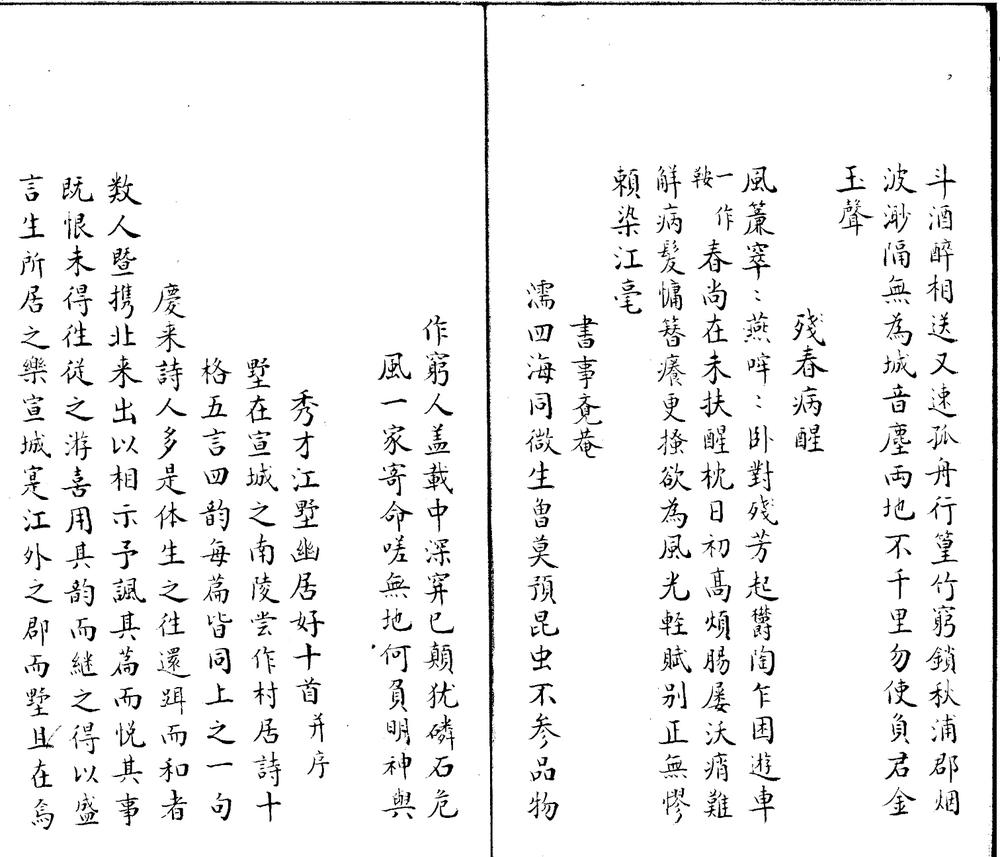 斗酒醉相送又速孤舟行篁竹窮鎖秋浦郡烟
波渺隔無為城音塵両地不千里勿使負君金
玉聲
殘春病醒
風簾窣：燕哰：卧對殘芳起欝陶乍困遊車
一作鞍春尚在未扶醒枕日初髙煩腸屡沃痟難
觧病髪慵簮癢更搔欲為風光軽賦别正無憀
頼染江毫
書事寛菴
濡四海同微生曽莫預昆虫不参品物
作窮人盖載中深穽已顛犹磷石危
風一家寄命嗟無地何負明神與
秀才江墅幽居好十首并序
墅在宣城之南陵尝作村居詩十
格五言四韵每萹皆同上之一句
慶来詩人多是体生之徃還踀而和者
数人暨携北来出以相示予諷其萹而悦其事
既恨未得徃従之游喜用其韵而継之得以盛
言生所居之樂宣城寔江外之郡而墅且在焉